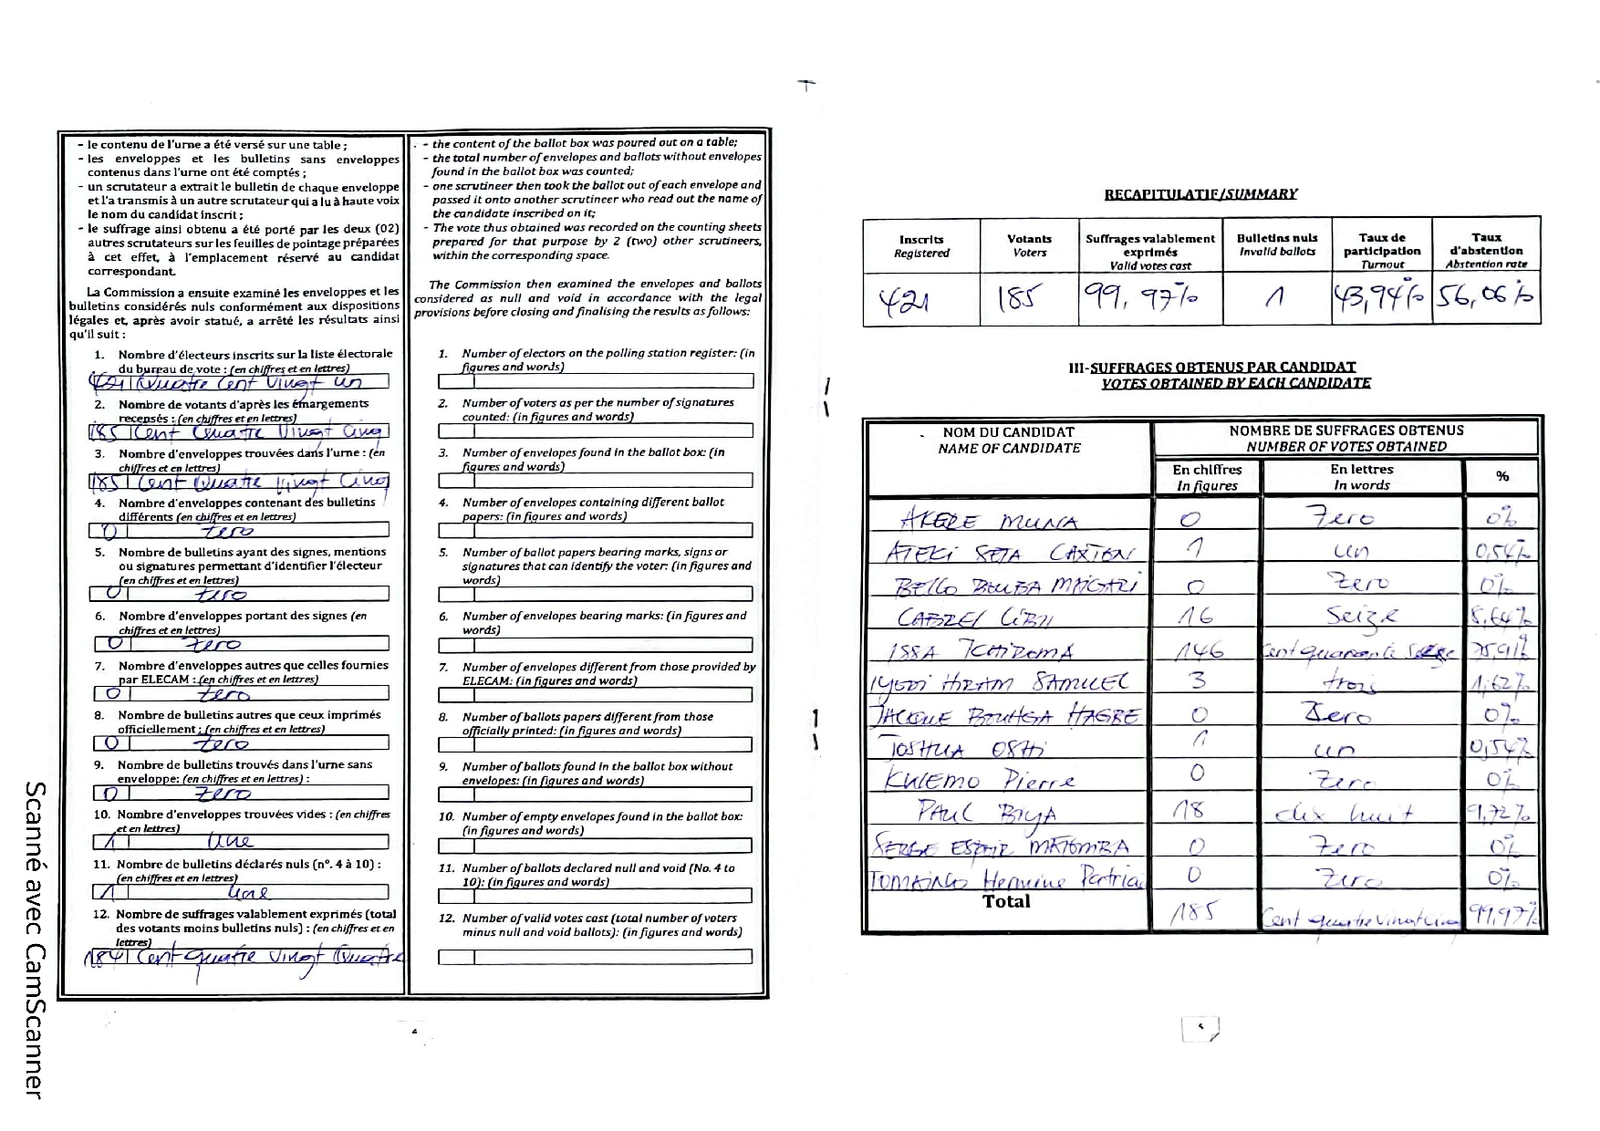 - le contenu de l'urne a été versé sur une table ;
- les enveloppes et les bulletins sans enveloppes
contenus dans l'urne ont été comptés ;
- un scrutateur a extrait le bulletin de chaque enveloppe
et l'a transmis à un autre scrutateur qui a lu à haute voix
le nom du candidat inscrit ;
- le suffrage ainsi obtenu a été porté par les deux (02)
autres scrutateurs sur les feuilles de pointage préparées
à cet effet, à l'emplacement réservé au candidat
correspondant.
La Commission a ensuite examiné les enveloppes et les
bulletins considérés nuls conformément aux dispositions
légales et, après avoir statué, a arrêté les résultats ainsi
qu'il suit :
1. Nombre d'électeurs inscrits sur la liste électorale
du bureau de vote : (en chiffres et en lettres)
421 Quatre Cent Vingt un
2. Nombre de votants d'après les émargements
recensés : (en chiffres et en lettres)
185 Cent Quatre Vingt Cinq
3. Nombre d'enveloppes trouvées dans l'urne : (en
chiffres et en lettres)
185 Cent Quatre Vingt Cinq
4. Nombre d'enveloppes contenant des bulletins
différents (en chiffres et en lettres)
0 zero
5. Nombre de bulletins ayant des signes, mentions
ou signatures permettant d'identifier l'électeur
(en chiffres et en lettres)
0 zero
6. Nombre d'enveloppes portant des signes (en
chiffres et en lettres)
0 zero
7. Nombre d'enveloppes autres que celles fournies
par ELECAM : (en chiffres et en lettres)
0 zero
8. Nombre de bulletins autres que ceux imprimés
officiellement : (en chiffres et en lettres)
0 zero
9. Nombre de bulletins trouvés dans l'urne sans
enveloppe: (en chiffres et en lettres) :
0 zero
10. Nombre d'enveloppes trouvées vides : (en chiffres
et en lettres)
1 Une
11. Nombre de bulletins déclarés nuls (n°. 4 à 10) :
(en chiffres et en lettres)
1 Une
12. Nombre de suffrages valablement exprimés (total
des votants moins bulletins nuls) : (en chiffres et en
lettres)
184 Cent quatre vingt Quatre
- the content of the ballot box was poured out on a table;
- the total number of envelopes and ballots without envelopes
found in the ballot box was counted;
- one scrutineer then took the ballot out of each envelope and
passed it onto another scrutineer who read out the name of
the candidate inscribed on it;
- The vote thus obtained was recorded on the counting sheets
prepared for that purpose by 2 (two) other scrutineers,
within the corresponding space.
The Commission then examined the envelopes and ballots
considered as null and void in accordance with the legal
provisions before closing and finalising the results as follows:
1. Number of electors on the polling station register: (in
figures and words)
2. Number of voters as per the number of signatures
counted: (in figures and words)
3. Number of envelopes found in the ballot box: (in
figures and words)
4. Number of envelopes containing different ballot
papers: (in figures and words)
5. Number of ballot papers bearing marks, signs or
signatures that can identify the voter: (in figures and
words)
6. Number of envelopes bearing marks: (in figures and
words)
7. Number of envelopes different from those provided by
ELECAM: (in figures and words)
8. Number of ballots papers different from those
officially printed: (in figures and words)
9. Number of ballots found in the ballot box without
envelopes: (in figures and words)
10. Number of empty envelopes found in the ballot box:
(in figures and words)
11. Number of ballots declared null and void (No. 4 to
10): (in figures and words)
12. Number of valid votes cast (total number of voters
minus null and void ballots): (in figures and words)
4
RECAPITULATIF/SUMMARY
Inscrits Registered Votants Voters Suffrages valablement exprimés Valid votes cast Bulletins nuls Invalid ballots Taux de participation Turnout Taux d'abstention Abstention rate
421 185 99,97% 1 43,94% 56,06%
III-SUFFRAGES OBTENUS PAR CANDIDAT
VOTES OBTAINED BY EACH CANDIDATE
NOM DU CANDIDAT NOMBRE DE SUFFRAGES OBTENUS
NAME OF CANDIDATE NUMBER OF VOTES OBTAINED
En chiffres En lettres %
In figures In words
AKERE MUNA 0 Zero 0%
ATEKI SETA CAXTON 1 un 0,54%
BELLO BOUBA MAIGARI 0 Zero 0%
CABREL LIBII 16 Seize 8,64%
ISSA TCHIROMA 146 Cent quarante
IYODI HIRAM SAMUEL 3 trois 1,62%
JACQUE BOUHGA HAGBE 0 Zero 0%
JOSHUA OSHI 1 un 0,54%
KWEMO Pierre 0 Zero 0%
PAUL BIYA 18 dix huit 9,72%
SERGE ESPOIR MATOMBA 0 Zero 0%
TOMAINO Hermine Patricia 0 Zero 0%
Total 185 Cent quatre Vingt Cinq 99,97%
5
Scanné avec CamScanner